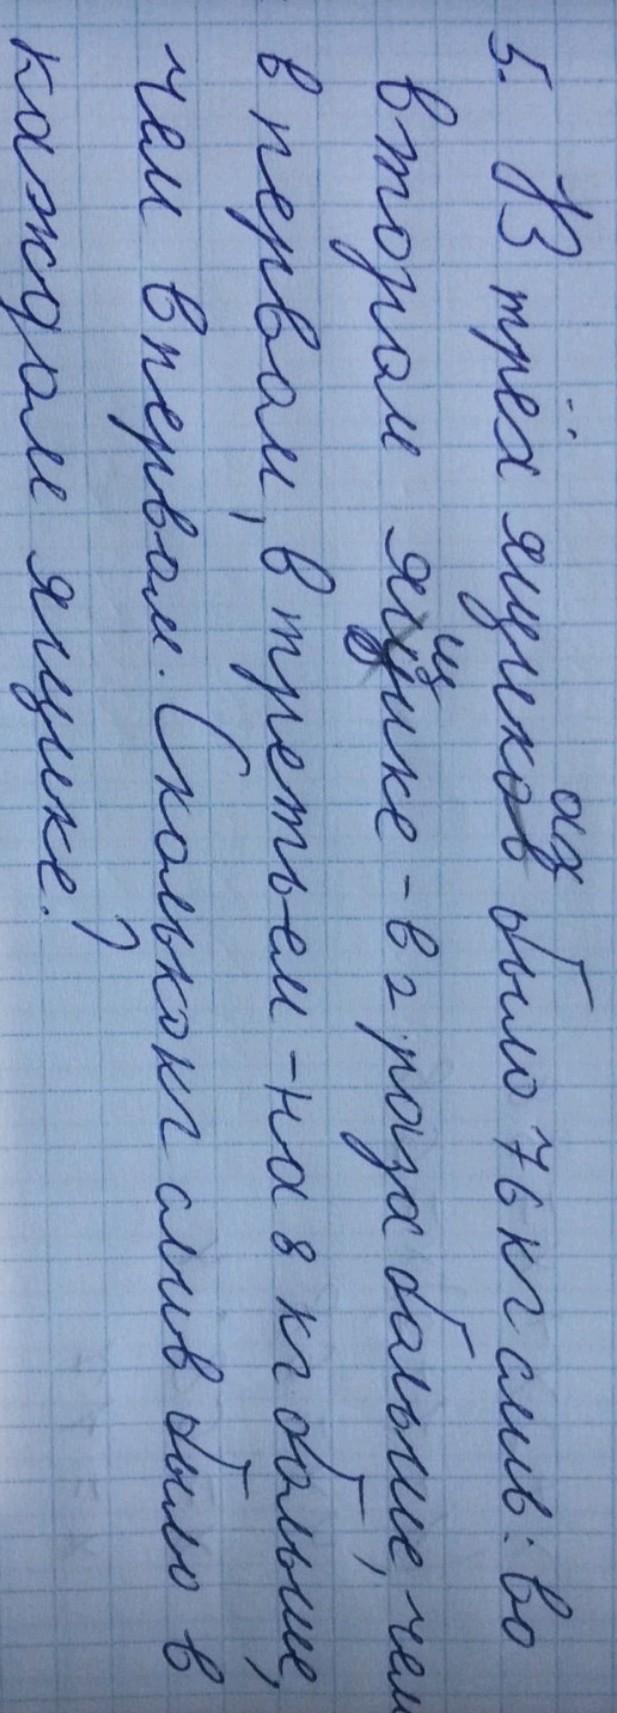 5. В трёх ящиках было 76 кг слив: во
втором ящике - в 2 раза больше, чем
в первом, в третьем - на 8 кг больше,
чем в первом. Сколько кг слив было в
каждом ящике?